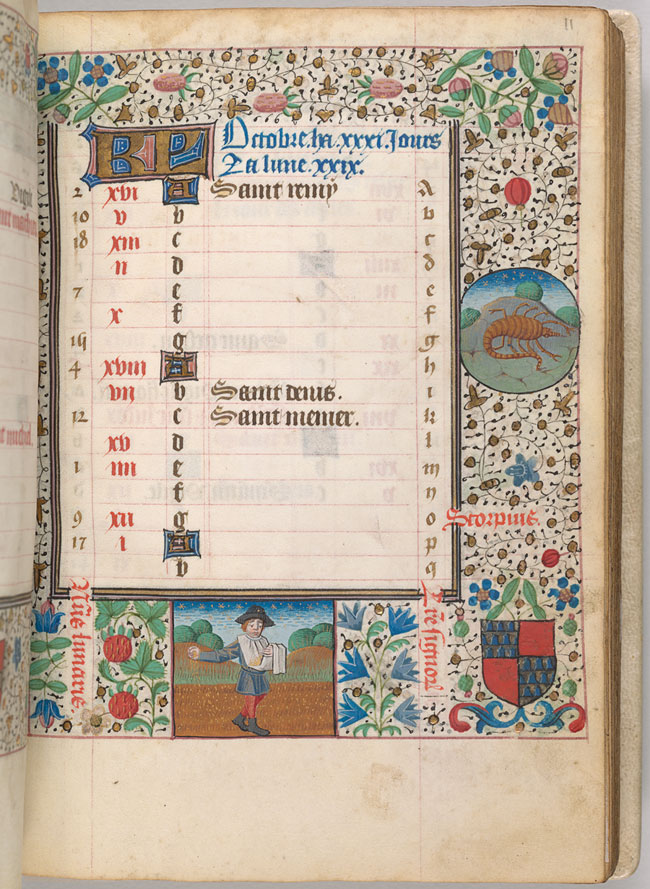 11
KL Octobre. ha .xxxi. Jours
La lune .xxix.
2 xvi A Saint remy A
10 v b b
18 xiii c c
ii d d
7 e e
x f f
g g
4 xviii A h
vii b Saint denis. i
12 c Saint menier. k
xv d l
1 iiii e m
f n
9 xii g o
Scorpius.
17 i A p
b q